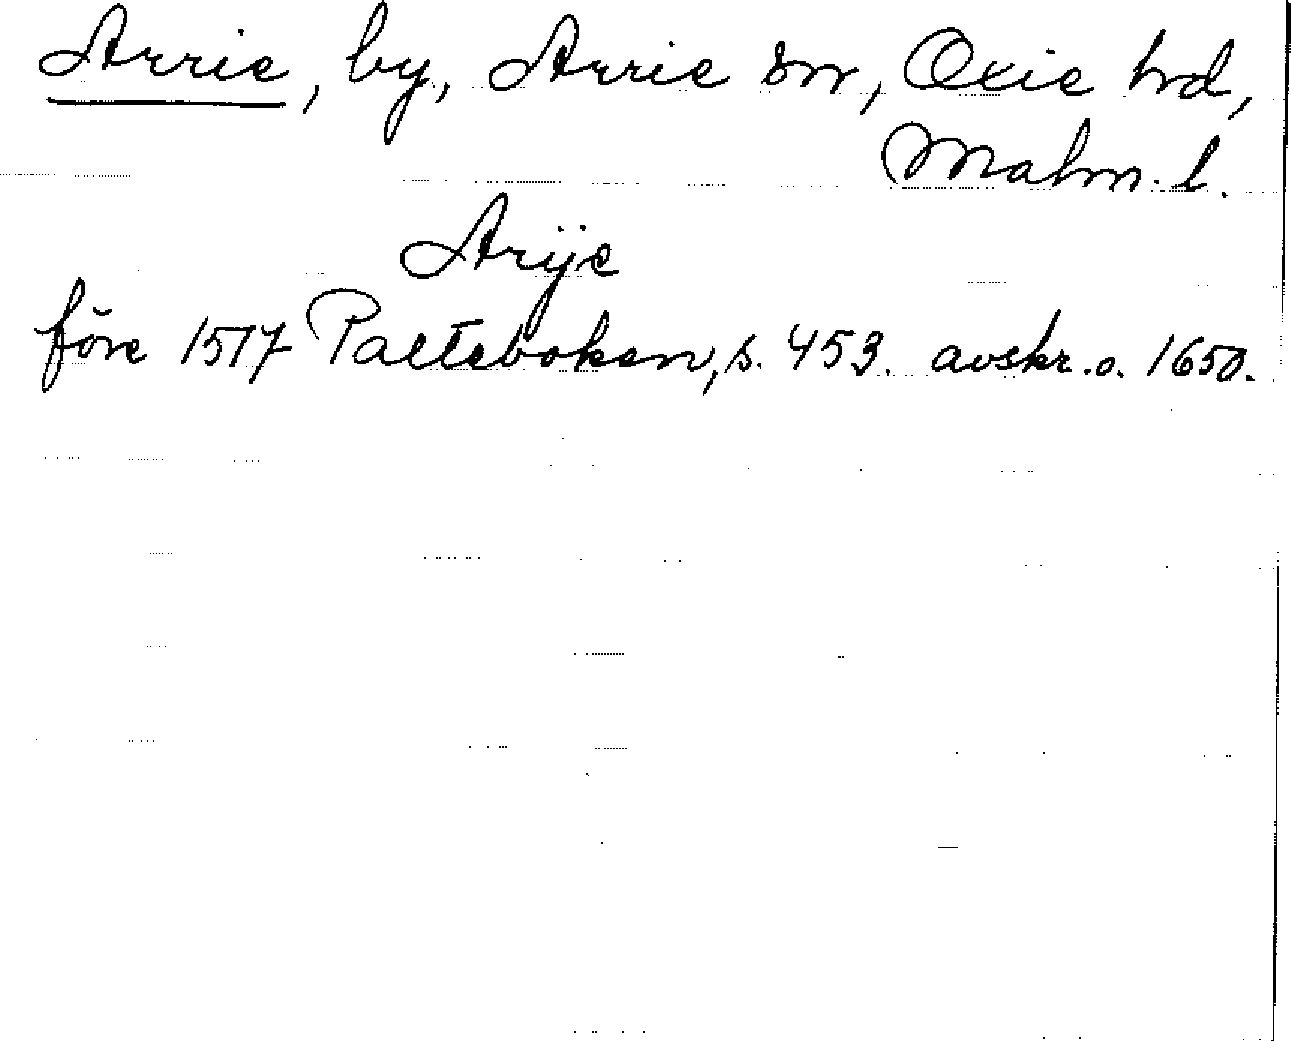 Arrie, by, Arrie sn, Oxie hd,
Malm. l.
Arÿe
före 1517 Palteboken, s. 453. avskr. o. 1650.